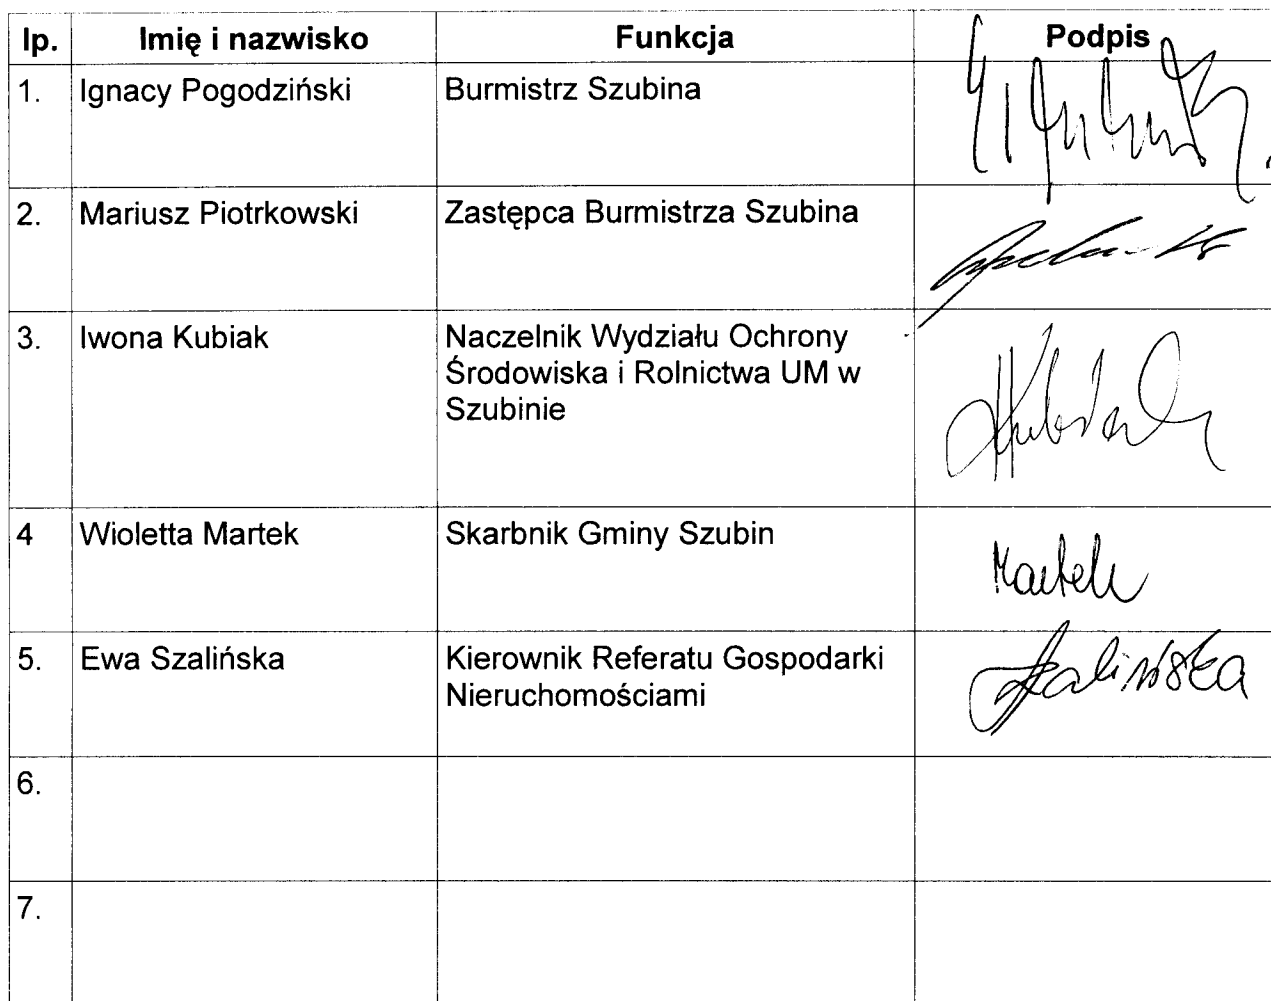 lp. Imię i nazwisko Funkcja Podpis
1. Ignacy Pogodziński Burmistrz Szubina
2. Mariusz Piotrkowski Zastępca Burmistrza Szubina
3. Iwona Kubiak Naczelnik Wydziału Ochrony
Środowiska i Rolnictwa UM w
Szubinie
4 Wioletta Martek Skarbnik Gminy Szubin Martek
5. Ewa Szalińska Kierownik Referatu Gospodarki Szalińska
Nieruchomościami
6.
7.